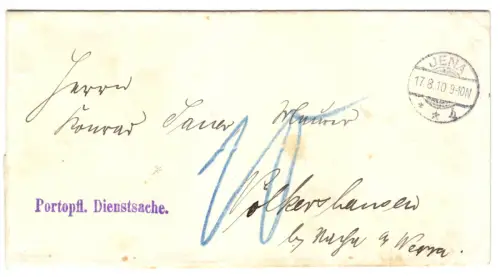 JENA
17.8.10 9-10N
* * 4
Herrn
Konrad Sauer Maurer
10
Portopfl. Dienstsache.
Völkershausen
bei Vacha a Werra